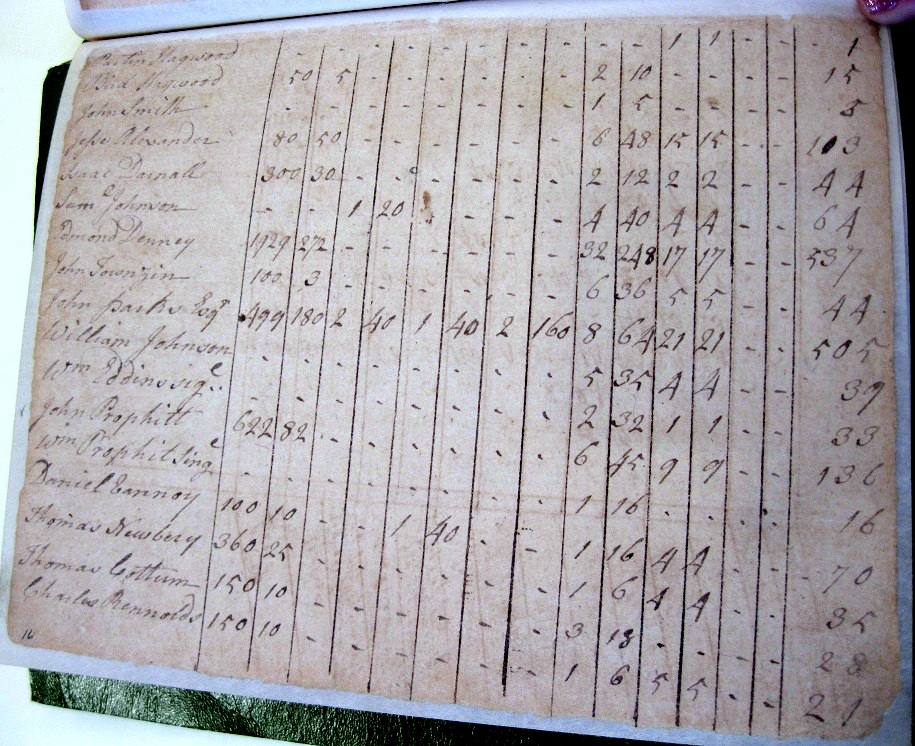 Partin Hagwood - - - - - - - - - - 1 1 - - 1
Bird Hagwood 50 5 - - - - - - 2 10 - - - - 15
John Smith - - - - - - - - 1 5 - - - - 5
Jesse Alexander 80 50 - - - - - - 6 48 15 15 - - 103
Isaac Darnall 300 30 - - - - - - 2 12 2 2 - - 44
Saml Johnson - - 1 20 - - - - 4 40 4 4 - - 64
Edmond Denney 1929 272 - - - - - - 32 248 17 17 - - 537
John Townzin 100 3 - - - - - - 6 36 5 5 - - 44
John Parks Esqr 499 180 2 40 1 40 2 160 8 64 21 21 - - 505
William Johnson - - - - - - - - 5 35 4 4 - - 39
Wm Eddins sigle - - - - - - - - 2 32 1 1 - - 33
John Prophitt 622 82 - - - - - - 6 45 9 9 - - 136
Wm Prophit Singl - - - - - - - - 1 16 - - - - 16
Daniel Eannoy 100 10 - - 1 40 - - 1 16 4 4 - - 70
Thomas Newbery 360 25 - - - - - - 1 6 4 4 - - 35
Thomas Cottum 150 10 - - - - - - 3 18 - - - - 28
Charles Rennolds 150 10 - - - - - - 1 6 5 5 - - 21